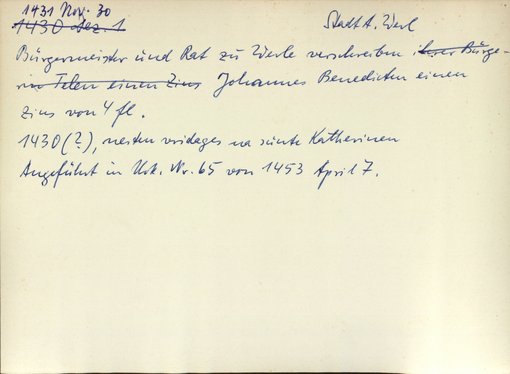 1431 Nov. 30
1430 Dez. 1
Stadt A. Werl
Bürgermeister und Rat zu Werle verschreiben ihrer Bürge-
rin Telen einen Zins Johannes Benedicten einen
Zins von 4 fl.
1430 (?), nesten vridages na sünte Katherinen
Angeführt in Urk. Nr. 65 von 1453 April 7.